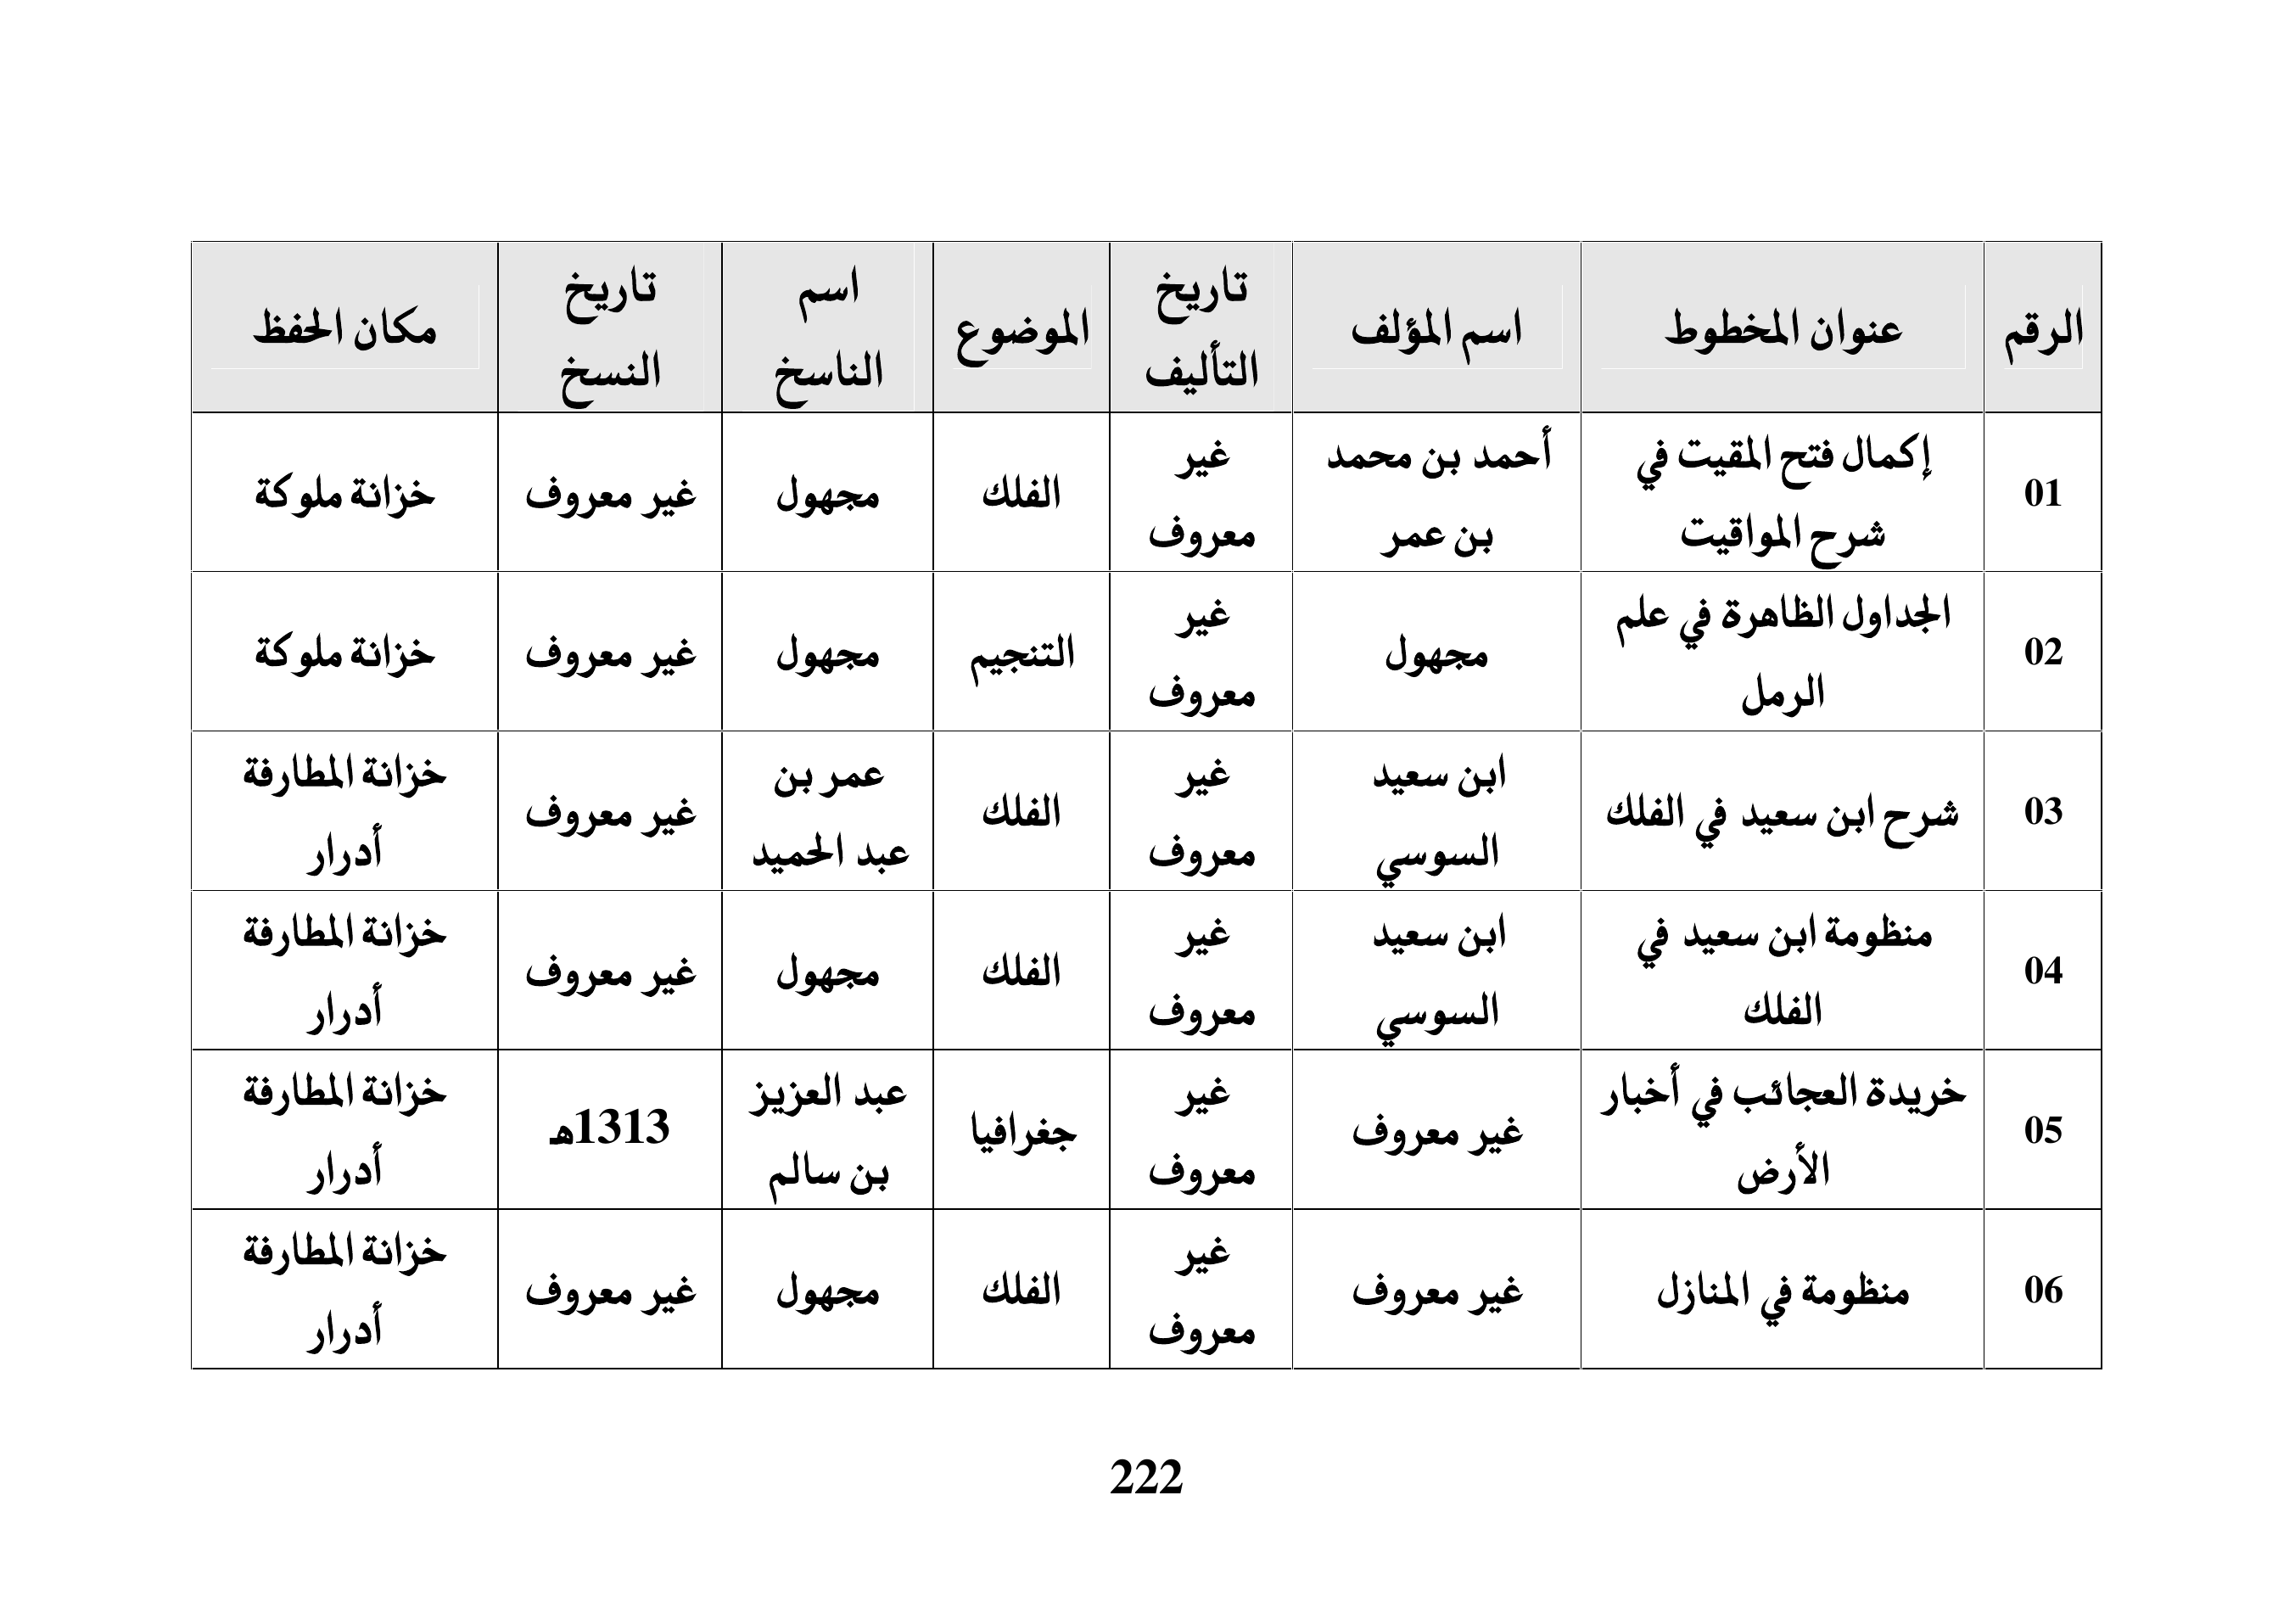 الرقم
عنوان المخطوط
اسم المؤلف
تاريخ
التأليف
الموضوع
اسم
الناسخ
تاريخ
النسخ
مكان الحفظ
01
إكمال فتح المقيت في
شرح المواقيت
أحمد بن محمد
بن عمر
غير
معروف
الفلك
مجهول
غير معروف
خزانة ملوكة
02
الجداول الظاهرة في علم
الرمل
مجهول
غير
معروف
التنجيم
مجهول
غير معروف
خزانة ملوكة
03
شرح ابن سعيد في الفلك
ابن سعيد
السوسي
غير
معروف
الفلك
عمر بن
عبد الحميد
غير معروف
خزانة المطارفة
أدرار
04
منظومة ابن سعيد في
الفلك
ابن سعيد
السوسي
غير
معروف
الفلك
مجهول
غير معروف
خزانة المطارفة
أدرار
05
خريدة العجائب في أخبار
الأرض
غير معروف
غير
معروف
جغرافيا
عبد العزيز
بن سالم
1313هـ
خزانة المطارفة
أدرار
06
منظومة في المنازل
غير معروف
غير
معروف
الفلك
مجهول
غير معروف
خزانة المطارفة
أدرار
222